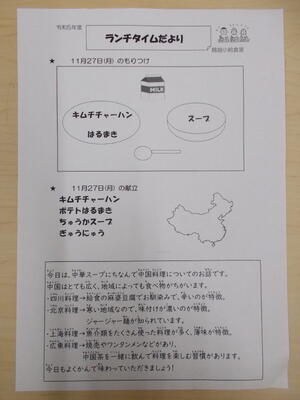 令和5年度
ランチタイムだより
小給食室
★ 11月27日(月) のもりつけ
MILK
キムチチャーハン
はるまき
スープ
★ 11月27日(月) の献立
キムチチャーハン
ポテトはるまき
ちゅうかスープ
ぎゅうにゅう
今日は、中華スープにちなんで中国料理についてのお話です。
中国はとても広く、地域によっても食べ物がちがいます。
・四川料理→給食の麻婆豆腐でお馴染みで、辛いのが特徴。
・北京料理→寒い地域なので、味付けが濃いのが特徴。
ジャージャー麺が知られています。
・上海料理→魚介類をたくさん使った料理が多く、薄味が特徴。
・広東料理→焼売やワンタンメンなどがあり、
中国茶を一緒に飲んで料理を楽しむ習慣があります。
今日もよくかんで味わっていただきましょう!